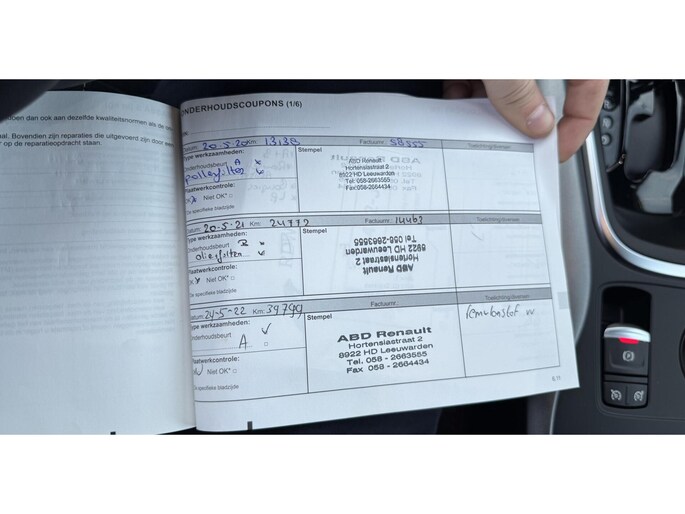 oen dan ook aan dezelfde kwaliteitsnormen als de
al. Bovendien zijn reparaties die uitgevoerd zijn door
op de reparatieopdracht staan.
ONDERHOUDSCOUPONS (1/6)
Datum: 20-5-20 Km: 13138 Factuurnr.: 58555 Toelichting/diversen
Type werkzaamheden: Stempel
Onderhoudsbeurt A
pollenfilter
Plaatwerkcontrole:
Niet OK*
De specifieke bladzijde
ABD Renault
Hortensiastraat 2
8922 HD Leeuwarden
Tel: 058-2663555
Fax: 058-2664434
Datum: 20-5-21 Km: 24772 Factuurnr.: 14463 Toelichting/diversen
Type werkzaamheden: Stempel
Onderhoudsbeurt B
oliefilter
Plaatwerkcontrole:
OK Niet OK*
De specifieke bladzijde
ABD Renault
Hortensiastraat 2
8922 HD Leeuwarden
Tel 058-2663555
Datum: 24-5-22 Km: 39799 Factuurnr.: Toelichting/diversen
Type werkzaamheden: Stempel
Onderhoudsbeurt A
Plaatwerkcontrole:
Niet OK*
De specifieke bladzijde
ABD Renault
Hortensiastraat 2
8922 HD Leeuwarden
Tel 058 - 2663555
Fax 058 - 2664434
remvloeistof